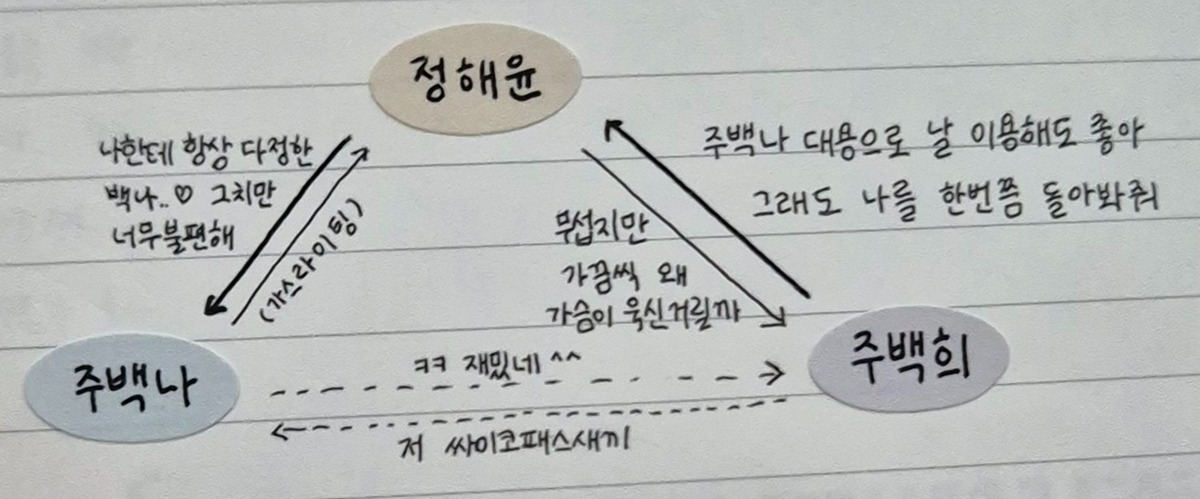 정해윤
나한테 항상 다정한
백나..♡ 그치만
너무불편해
(가스라이팅)
주백나 대용으로 날 이용해도 좋아
그래도 나를 한번쯤 돌아봐줘
무섭지만
가끔씩 왜
가슴이 욱신거릴까
주백나
ㅋㅋ 재밌네 ^^
주백희
저 싸이코패스새끼